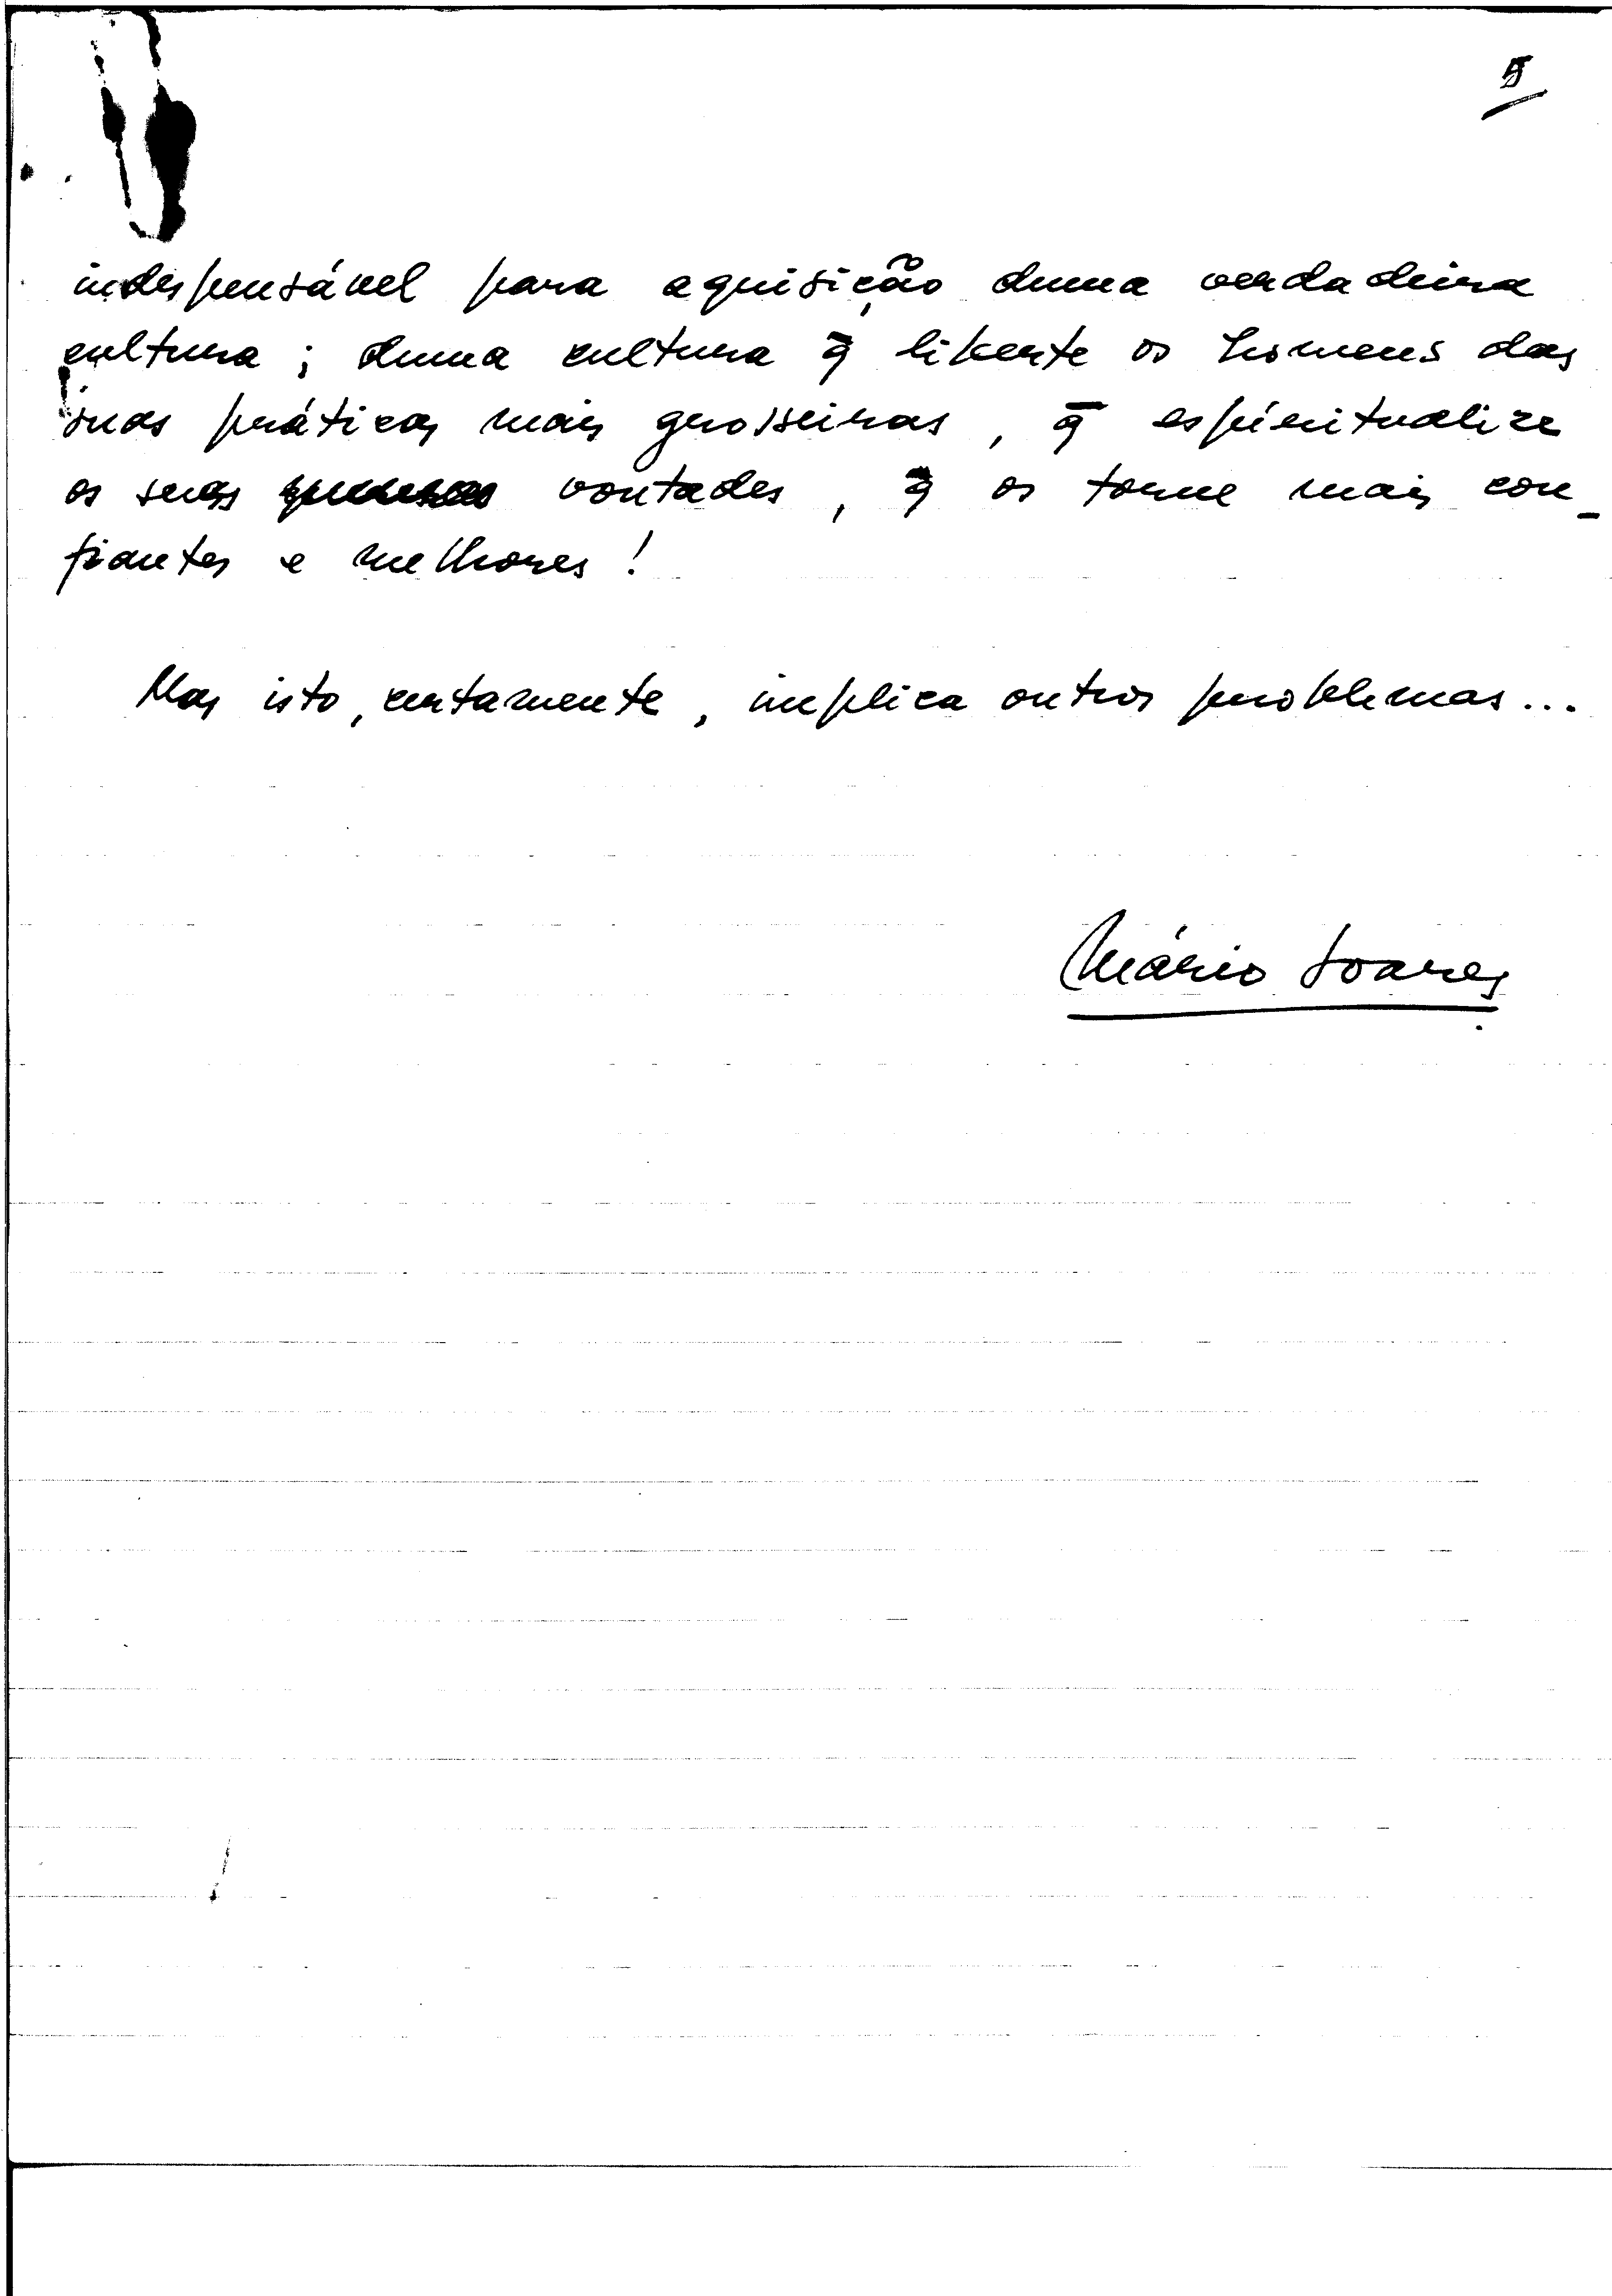 5
indespensável para aquisição duma verdadeira
cultura; duma cultura q̄ liberte os homens das
suas práticas mais grosseiras, q̄ espiritualize
as suas vontades, q̄ os torne mais con_
fiantes e melhores!
Mas isto, certamente, implica outros problemas...
Mário Soares